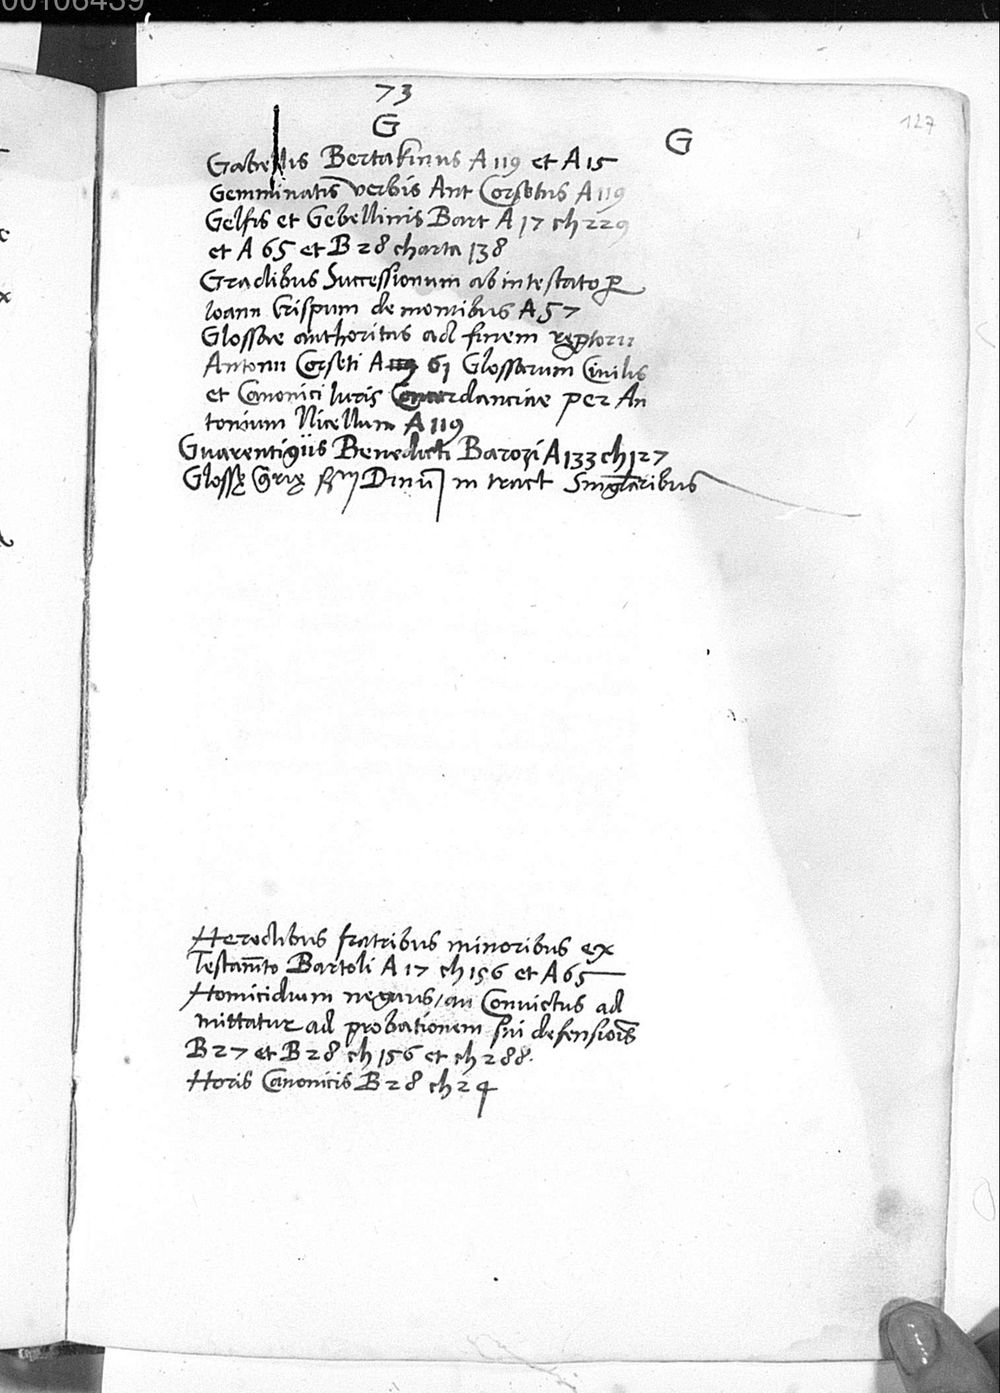 00106439
73
127
G
G
Gabellis Bertakinus A 119 et A 15
Gemminatis verbis Ant Corsetus A 119
Gelfis et Gebellinis Bart A 17 ch 229
et A 65 et B 28 charta 138
Gradibus Successionum ab intestato p̱
Ioann Crispum de montibus A 57
Glossae authoritas ad finem reptorii
Antonii Corseti A 61 Glossarum Civilis
et Canonici Iuris Concordanciae per An
tonium Nicellum A 119
Guarentigiis Benedicti Barozi A 133 ch 127
Glossę Grię Dinū in tract Singlaribus
Heredibus fratribus minoribus ex
Testam̄to Bartoli A 17 ch 156 et A 65
Homicidium negans / an Convictus ad
mittatur ad probationem sui defensiōis
B 27 et B 28 ch 156 et ch 288.
Horis Canonicis B 28 ch 24